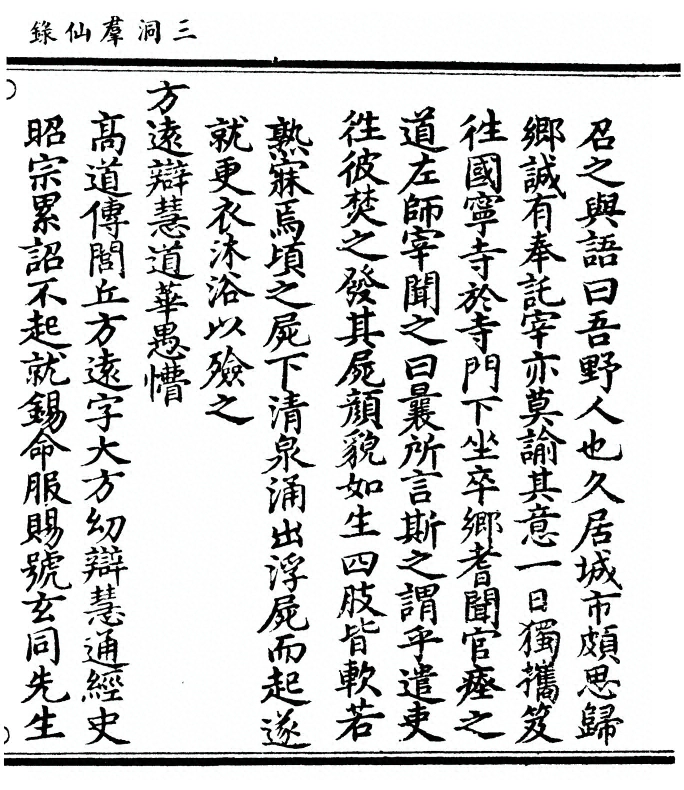 三洞羣仙錄
召之與語曰吾野人也久居城市頗思歸
鄉誠有奉託宰亦莫諭其意一日獨攜笈
徃國寧寺於寺門下坐卒鄉耆聞官瘞之
道左師宰聞之曰曩所言斯之謂乎遣吏
徃彼焚之發其屍顏貌如生四肢皆軟若
熟寐焉頃之屍下清泉涌出浮屍而起遂
就更衣沐浴以殮之
方遠辯慧道華愚懵
高道傳閭丘方遠字大方幼辯慧通經史
昭宗累詔不起就錫命服賜號玄同先生